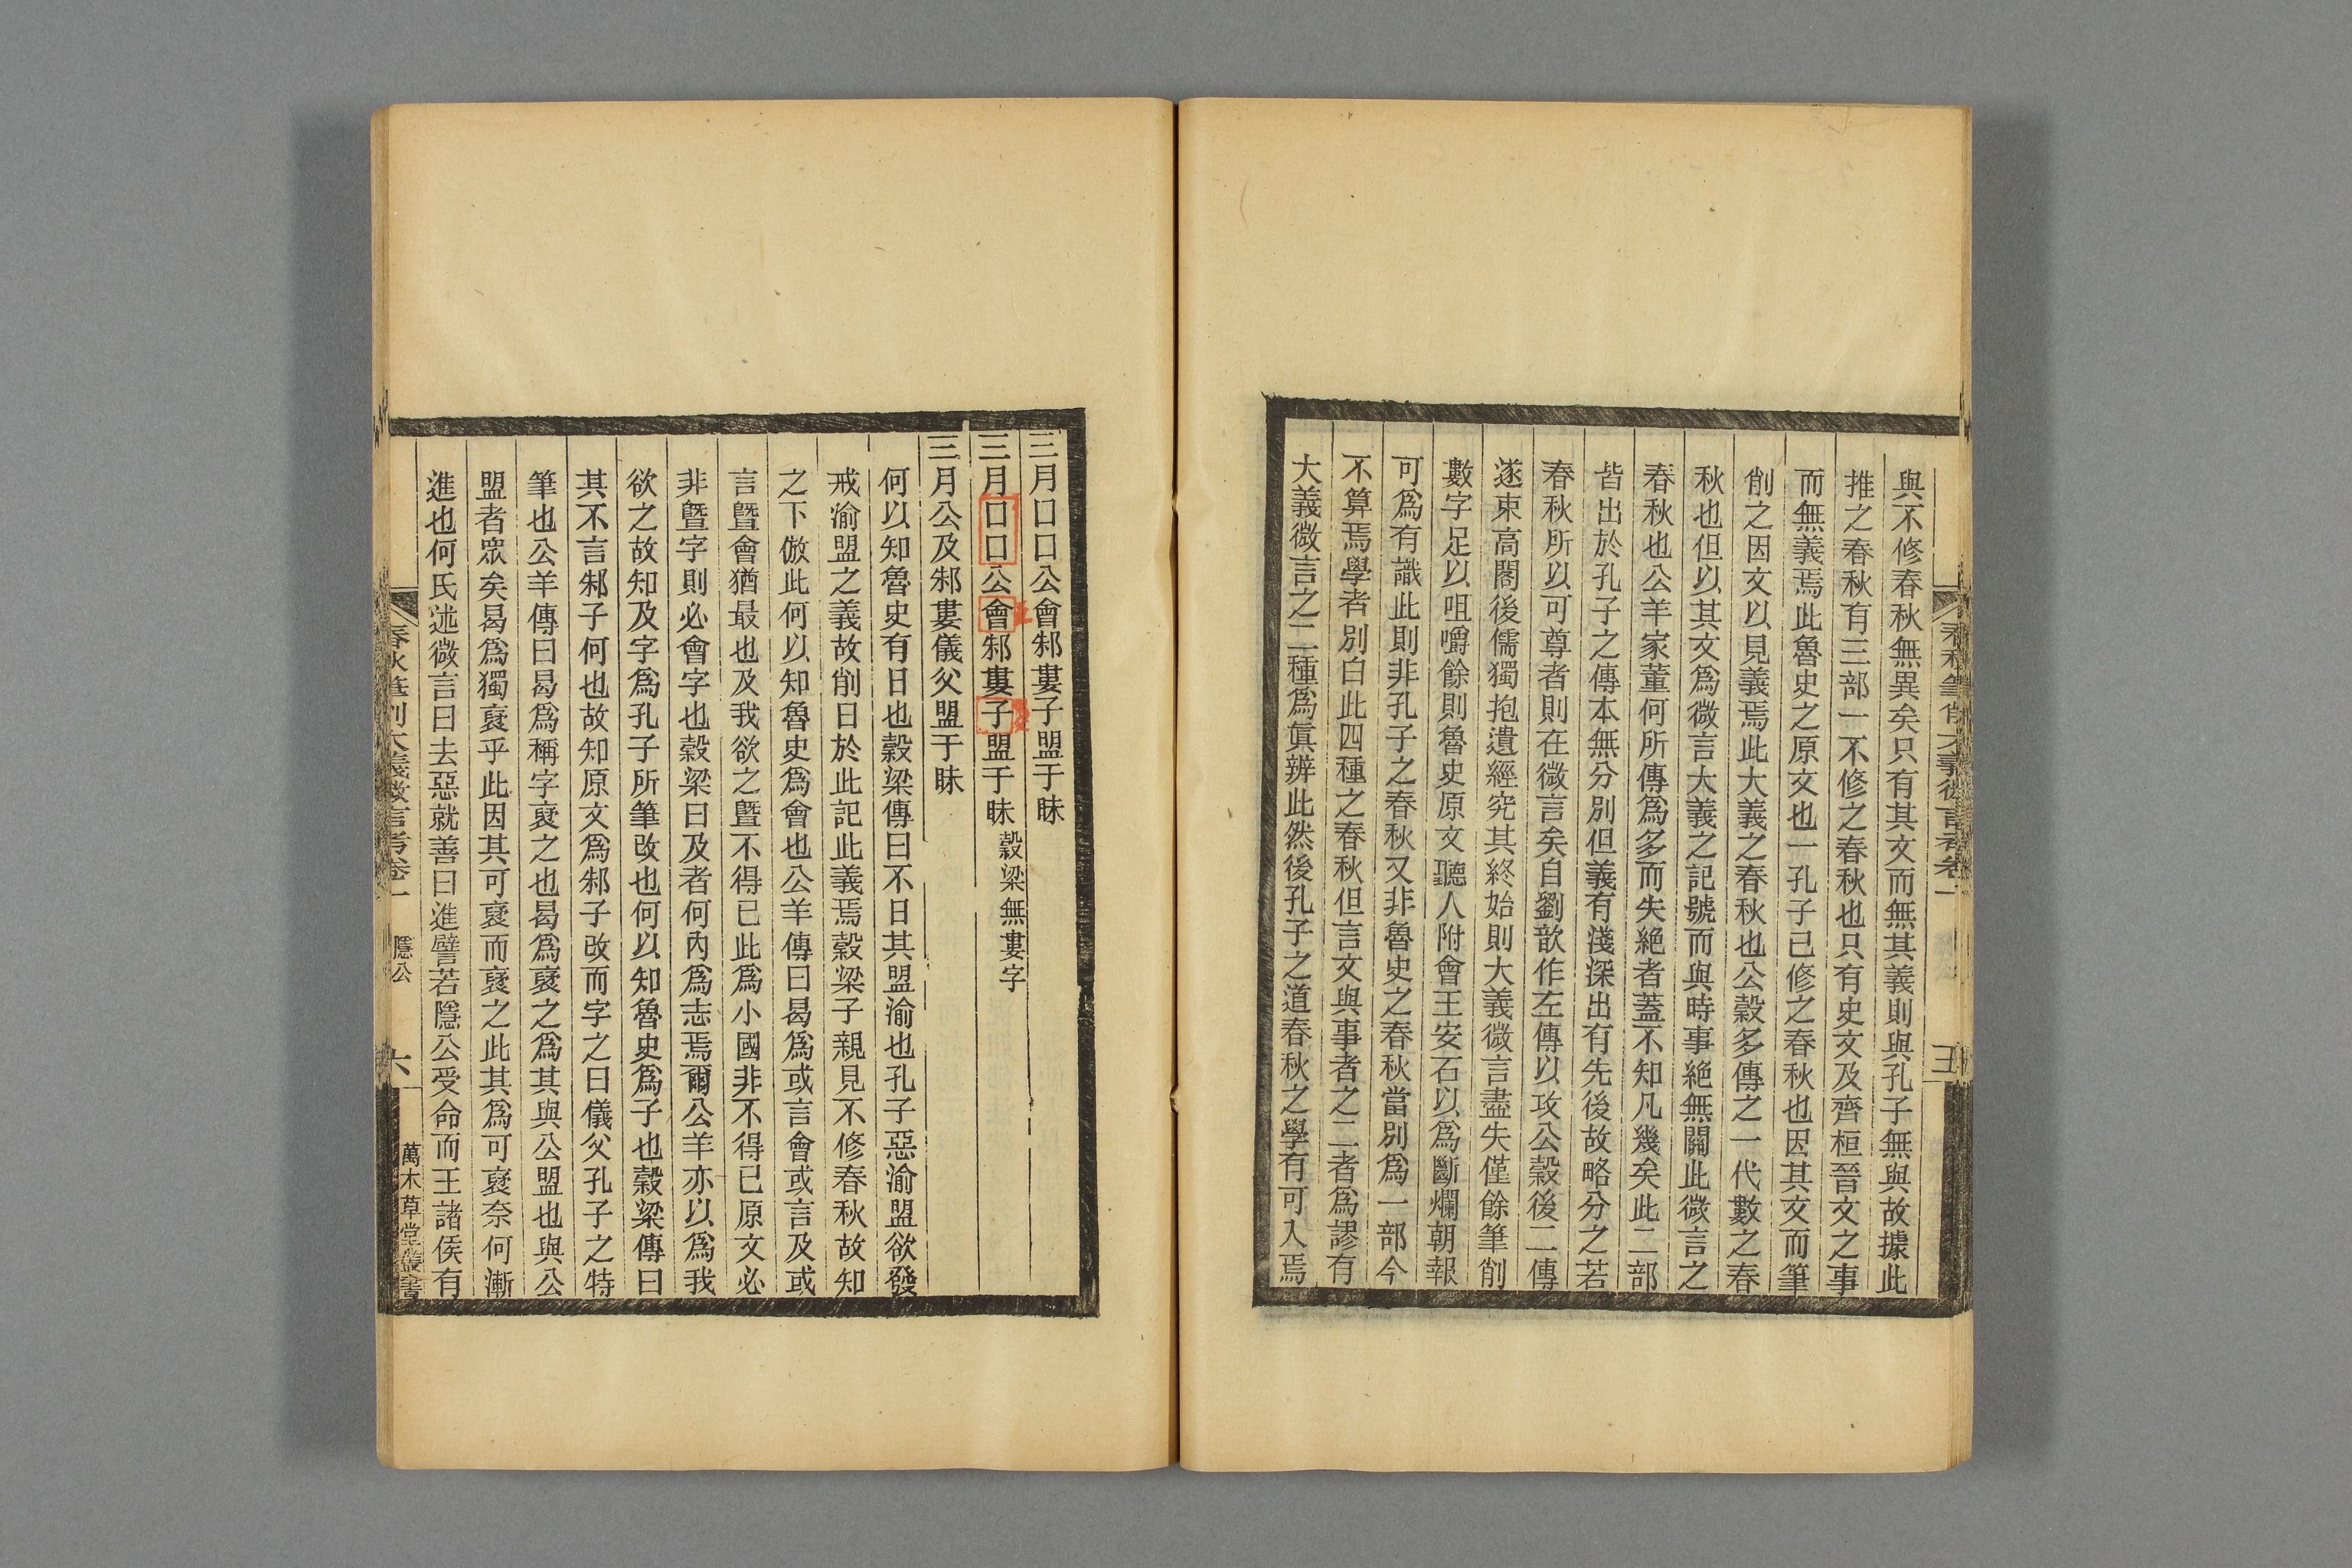 與不修春秋無異矣只有其文而無其義則與孔子無與故據此
推之春秋有三部一不修之春秋也只有史文及齊桓晉文之事
而無義焉此魯史之原文也一孔子已修之春秋也因其文而筆
削之因文以見義焉此大義之春秋也公穀多傳之一代數之春
秋也但以其文為微言大義之記號而與時事絕無關此微言之
春秋也公羊家董何所傳為多而失絕者蓋不知凡幾矣此二部
皆出於孔子之傳本無分別但義有淺深出有先後故略分之若
春秋所以可尊者則在微言矣自劉歆作左傳以攻公穀後二傳
遂束高閣後儒獨抱遺經究其終始則大義微言盡失僅餘筆削
數字足以咀嚼餘則魯史原文聽人附會王安石以為斷爛朝報
可為有識此則非孔子之春秋又非魯史之春秋當別為一部今
不算焉學者別白此四種之春秋但言文與事者之二者為謬有
大義微言之二種為眞辨此然後孔子之道春秋之學有可入焉
春秋筆削大義微言考卷一
五
三月口口公會邾婁子盟于眛
三月口口公會邾婁子盟于眛 穀梁無婁字
三月公及邾婁儀父盟于眛
何以知魯史有日也穀梁傳曰不日其盟渝也孔子惡渝盟欲發
戒渝盟之義故削日於此記此義焉穀梁子親見不修春秋故知
之下倣此何以知魯史為會也公羊傳曰曷為或言會或言及或
言曁會猶最也及我欲之曁不得已此為小國非不得已原文必
非曁字則必會字也穀梁曰及者何內為志焉爾公羊亦以為我
欲之故知及字為孔子所筆改也何以知魯史為子也穀梁傳曰
其不言邾子何也故知原文為邾子改而字之曰儀父孔子之特
筆也公羊傳曰曷為稱字褎之也曷為褎之為其與公盟也與公
盟者眾矣曷為獨褎乎此因其可褎而褎之此其為可褎奈何漸
進也何氏述微言曰去惡就善曰進譬若隱公受命而王諸侯有
春秋筆削大義微言考卷一
隱公
六
萬木草堂叢書